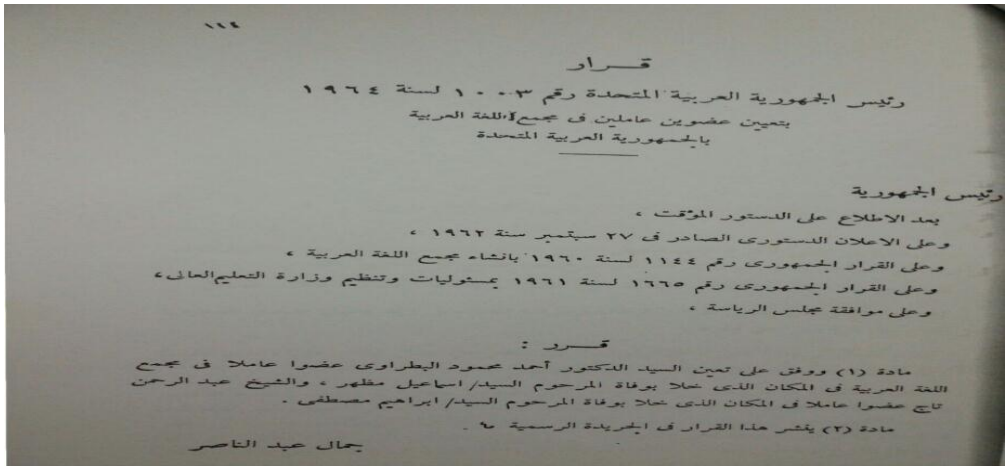 ١١٤
قـــرار
رئيس الجمهورية العربية المتحدة رقم ١٠٠٣ لسنة ١٩٦٤
بتعيين عضوين عاملين فى مجمع اللغة العربية
بالجمهورية العربية المتحدة
رئيس الجمهورية
بعد الاطلاع على الدستور المؤقت ،
وعلى الاعلان الدستورى الصادر فى ٢٧ سبتمبر سنة ١٩٦٢ ،
وعلى القرار الجمهورى رقم ١١٤٤ لسنة ١٩٦٠ بانشاء مجمع اللغة العربية ،
وعلى القرار الجمهورى رقم ١٦٦٥ لسنة ١٩٦١ بمسئوليات وتنظيم وزارة التعليم العالى،
وعلى موافقة مجلس الرياسة ،
قـــرر :
مادة (١) ووفق على تعين السيد الدكتور أحمد محمود البطراوى عضوا عاملا فى مجمع
اللغة العربية فى المكان الذى خلا بوفاة المرحوم السيد/ اسماعيل مظهر ، والشيخ عبد الرحمن
تاج عضوا عاملا فى المكان الذى خلا بوفاة المرحوم السيد/ ابراهيم مصطفى .
مادة (٢) ينشر هذا القرار فى الجريدة الرسمية
جمال عبد الناصر